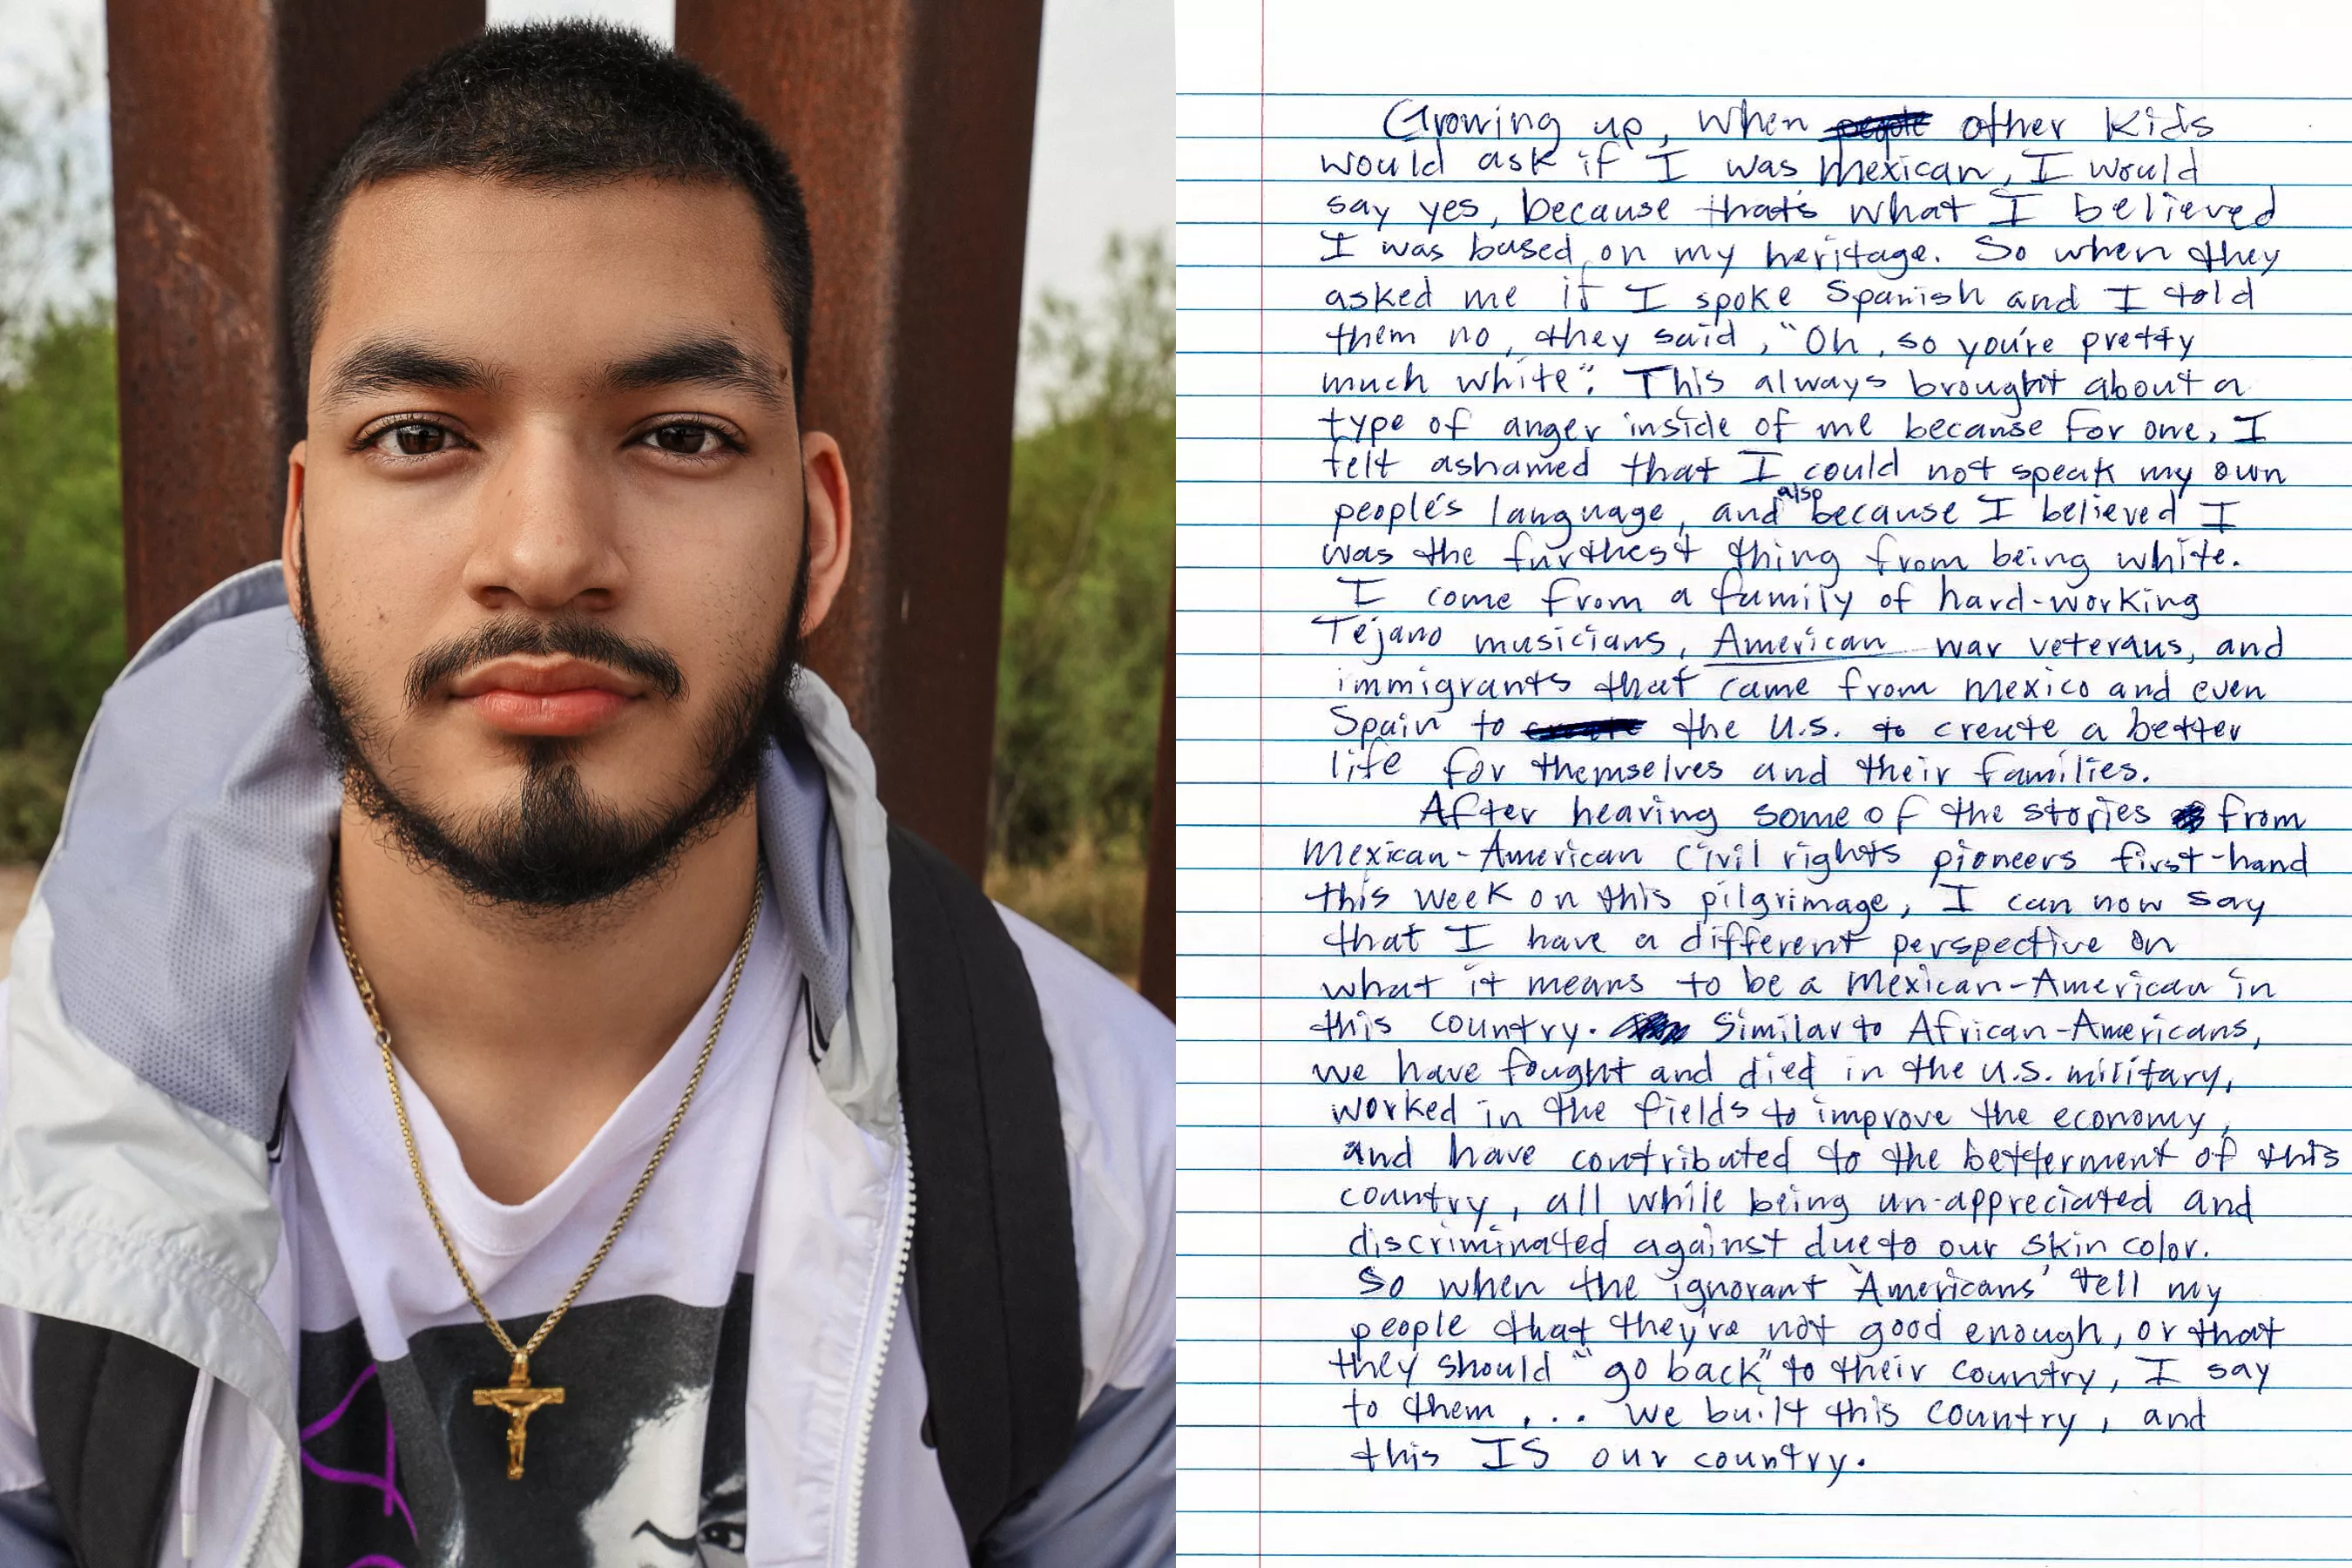 Growing up, when people other kids
would ask if I was mexican, I would
say yes, because thats what I believed
I was based on my heritage. So when they
asked me if I spoke Spanish and I told
them no, they said, "Oh, so you're pretty
much white". This always brought about a
type of anger inside of me because for one, I
felt ashamed that I could not speak my own
people's language, and also because I believed I
was the furthest thing from being white.
I come from a family of hard-working
Tejano musicians, American war veterans, and
immigrants that came from mexico and even
Spain to the U.S. to create a better
life for themselves and their families.
After hearing some of the stories from
mexican-American Civil rights pioneers first-hand
this week on this pilgrimage, I can now say
that I have a different perspective on
what it means to be a mexican-American in
this country. Similar to African-Americans,
we have fought and died in the U.S. military,
worked in the fields to improve the economy,
and have contributed to the betterment of this
country, all while being un-appreciated and
discriminated against due to our skin color.
So when the ignorant 'Americans' tell my
people that they're not good enough, or that
they should "go back" to their country, I say
to them, ... we built this country, and
this IS our country.